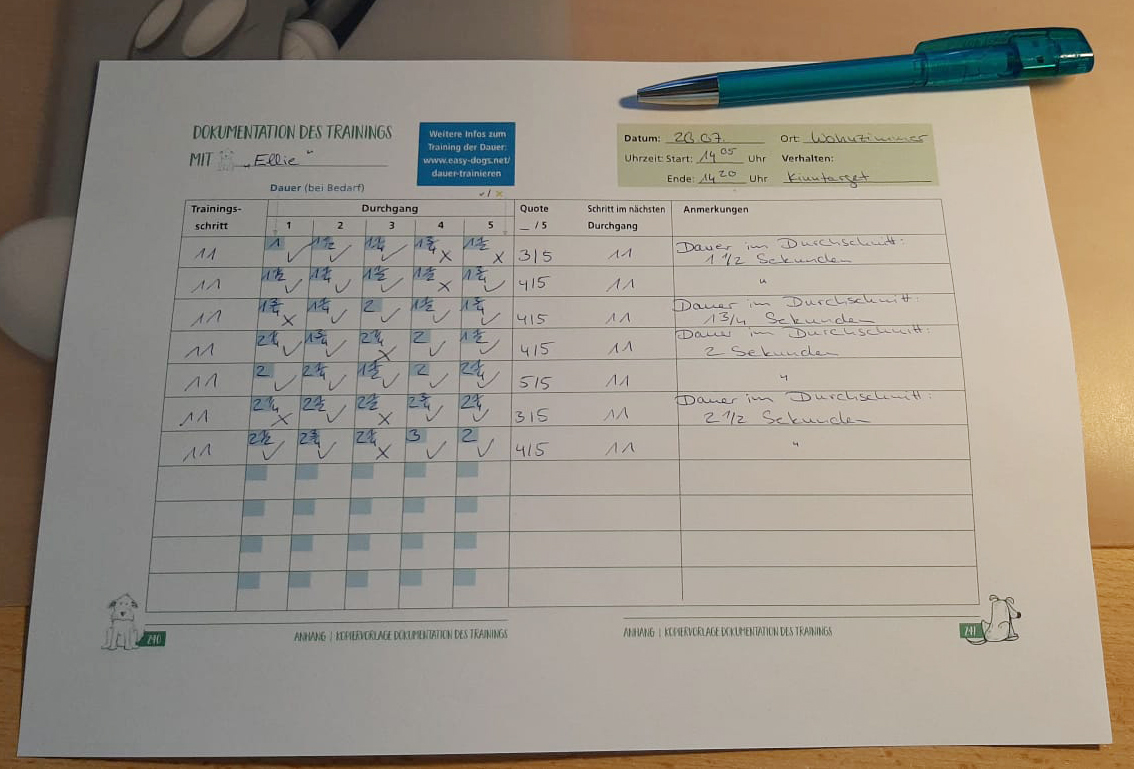 DOKUMENTATION DES TRAININGS
MIT „Ellie“
Weitere Infos zum
Training der Dauer:
www.easy-dogs.net/
dauer-trainieren
Datum: 28.07. Ort: Wohnzimmer
Uhrzeit: Start: 14 05 Uhr Verhalten:
Ende: 14 20 Uhr Kinntarget
Dauer (bei Bedarf)
✓ / ✗
Trainings- Durchgang Quote Schritt im nächsten Anmerkungen
schritt 1 2 3 4 5 _ / 5 Durchgang
11 1 ✓ ✓ ✓ ✗ ✗ 3/5 11 Dauer im Durchschnitt:
1 1/2 Sekunden
11 ✓ ✓ ✓ ✗ ✓ 4/5 11 "
11 ✗ ✓ 2 ✓ ✓ ✓ 4/5 11 Dauer im Durchschnitt:
1 3/4 Sekunden
11 ✓ ✓ ✗ 2 ✓ ✓ 4/5 11 Dauer im Durchschnitt:
2 Sekunden
11 2 ✓ ✓ ✓ 2 ✓ ✓ 5/5 11 "
11 ✗ ✓ ✗ ✓ ✓ 3/5 11 Dauer im Durchschnitt:
2 1/2 Sekunden
11 ✓ ✓ ✗ 3 ✓ 2 ✓ 4/5 11 "
240 ANHANG | KOPIERVORLAGE DOKUMENTATION DES TRAININGS
ANHANG | KOPIERVORLAGE DOKUMENTATION DES TRAININGS 241